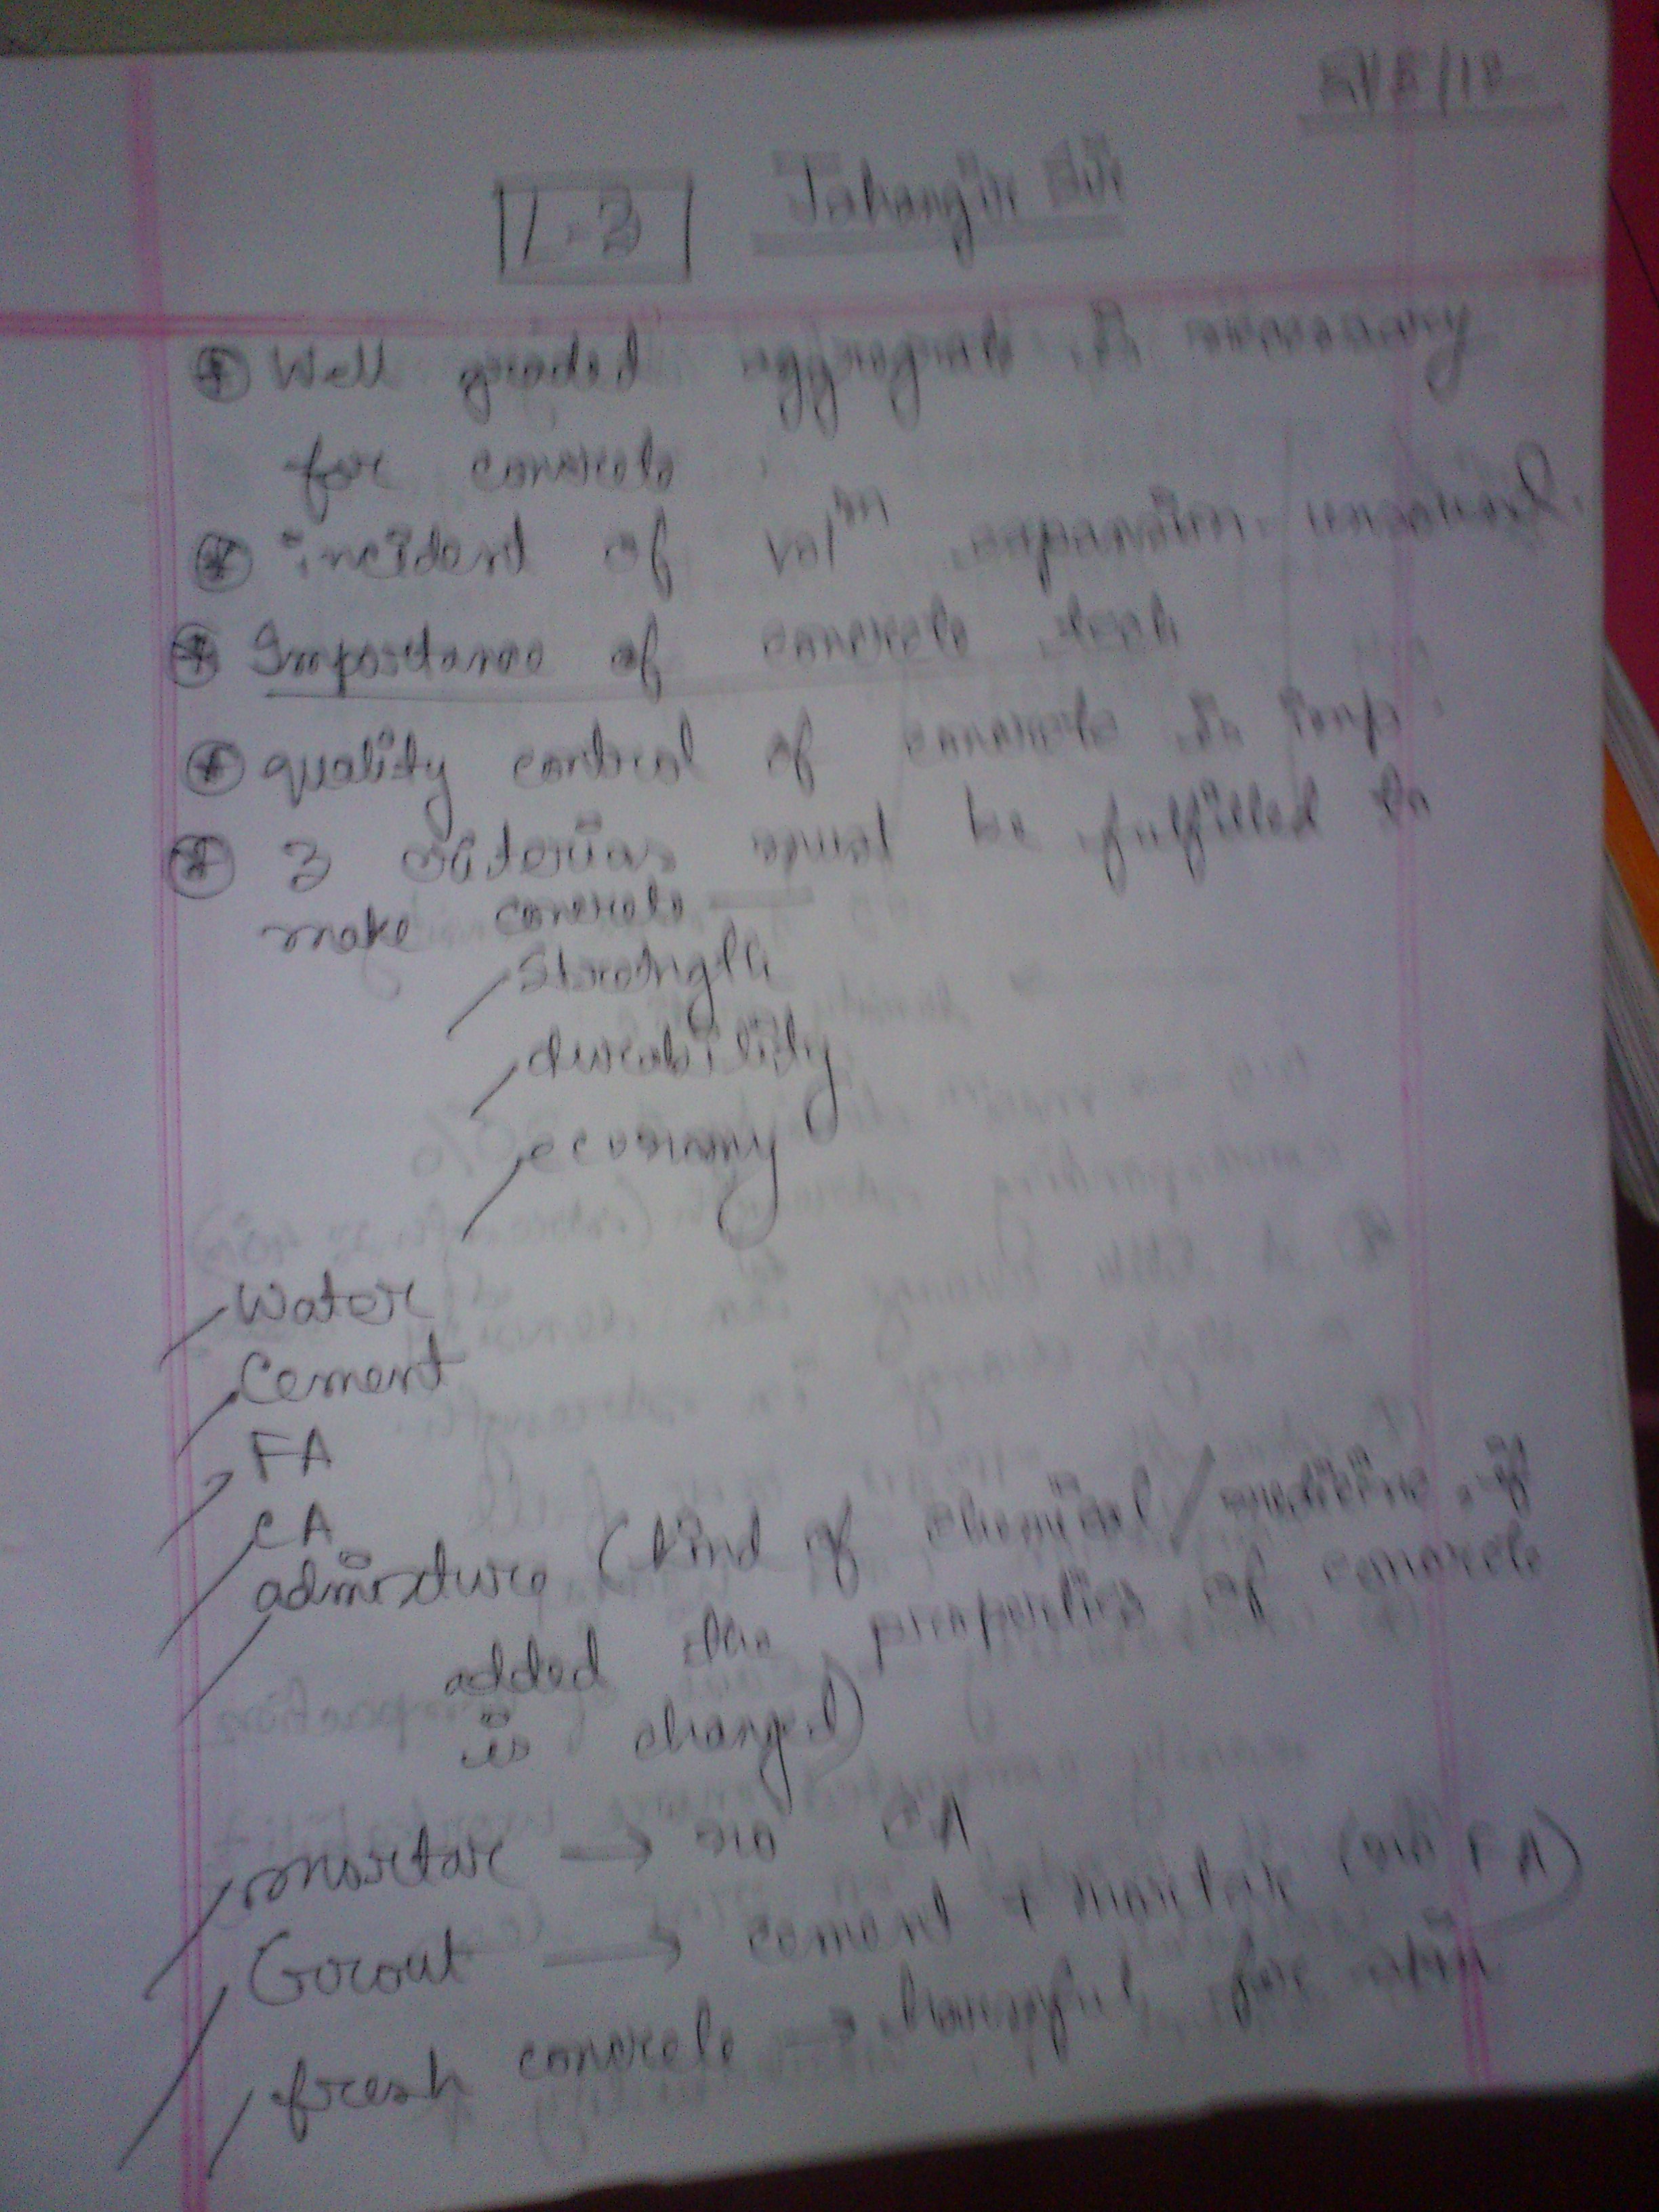 L-3 Jahangir Sir
* Well graded aggregate is necessary
for concrete
* incident of vol^m expansion unsound.
* Importance of concrete tech
* quality control of concrete is imp.
* 3 criterias must be fulfilled to
make concrete —
Strength
durability
economy
Water
Cement
FA
CA
admixture (kind of chemical/medicine, if
added the properties of concrete
is changed)
mortar → no CA
Grout → cement + (no FA)
fresh concrete → harmful for skin